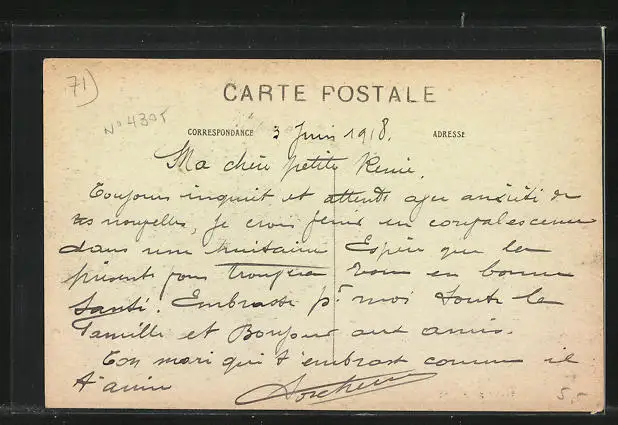 71
N° 4305
CARTE POSTALE
CORRESPONDANCE 3 Juin 1918. ADRESSE
Ma chère petite
Toujours inquiet et attends avec anxiété de
tes nouvelles, je crois partir en convalescence
dans une huitaine Espère que la
présente vous trouvera tous en bonne
Santé. Embrasse pr moi toute la
famille et Bonjour aux amis.
Ton mari qui t'embrasse comme il
t'aime
5,-